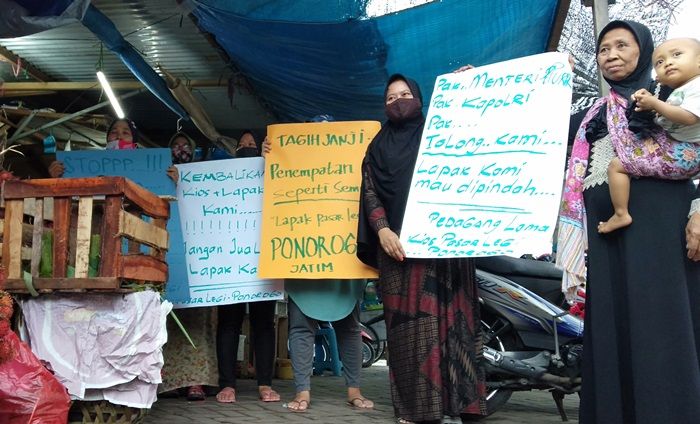 STOPPP...!!!
KEMBALIKAN
Kios + Lapak
Kami......
!!!!!!!!!
Jangan Jual
Lapak Ka
Pasar LEGI - PONOROGO
TAGIH JANJI...
Penempatan
SEPERTI SEM
"Lapak Pasar LEG
PONOROGO
JATIM
Pak. MENTERI
Pak KAPOLRI
Pak.....
Tolong.. Kami...
Lapak Kami
mau dipindah....
Pedagang Lama
Kios Pasar LEGI
PONOROGO